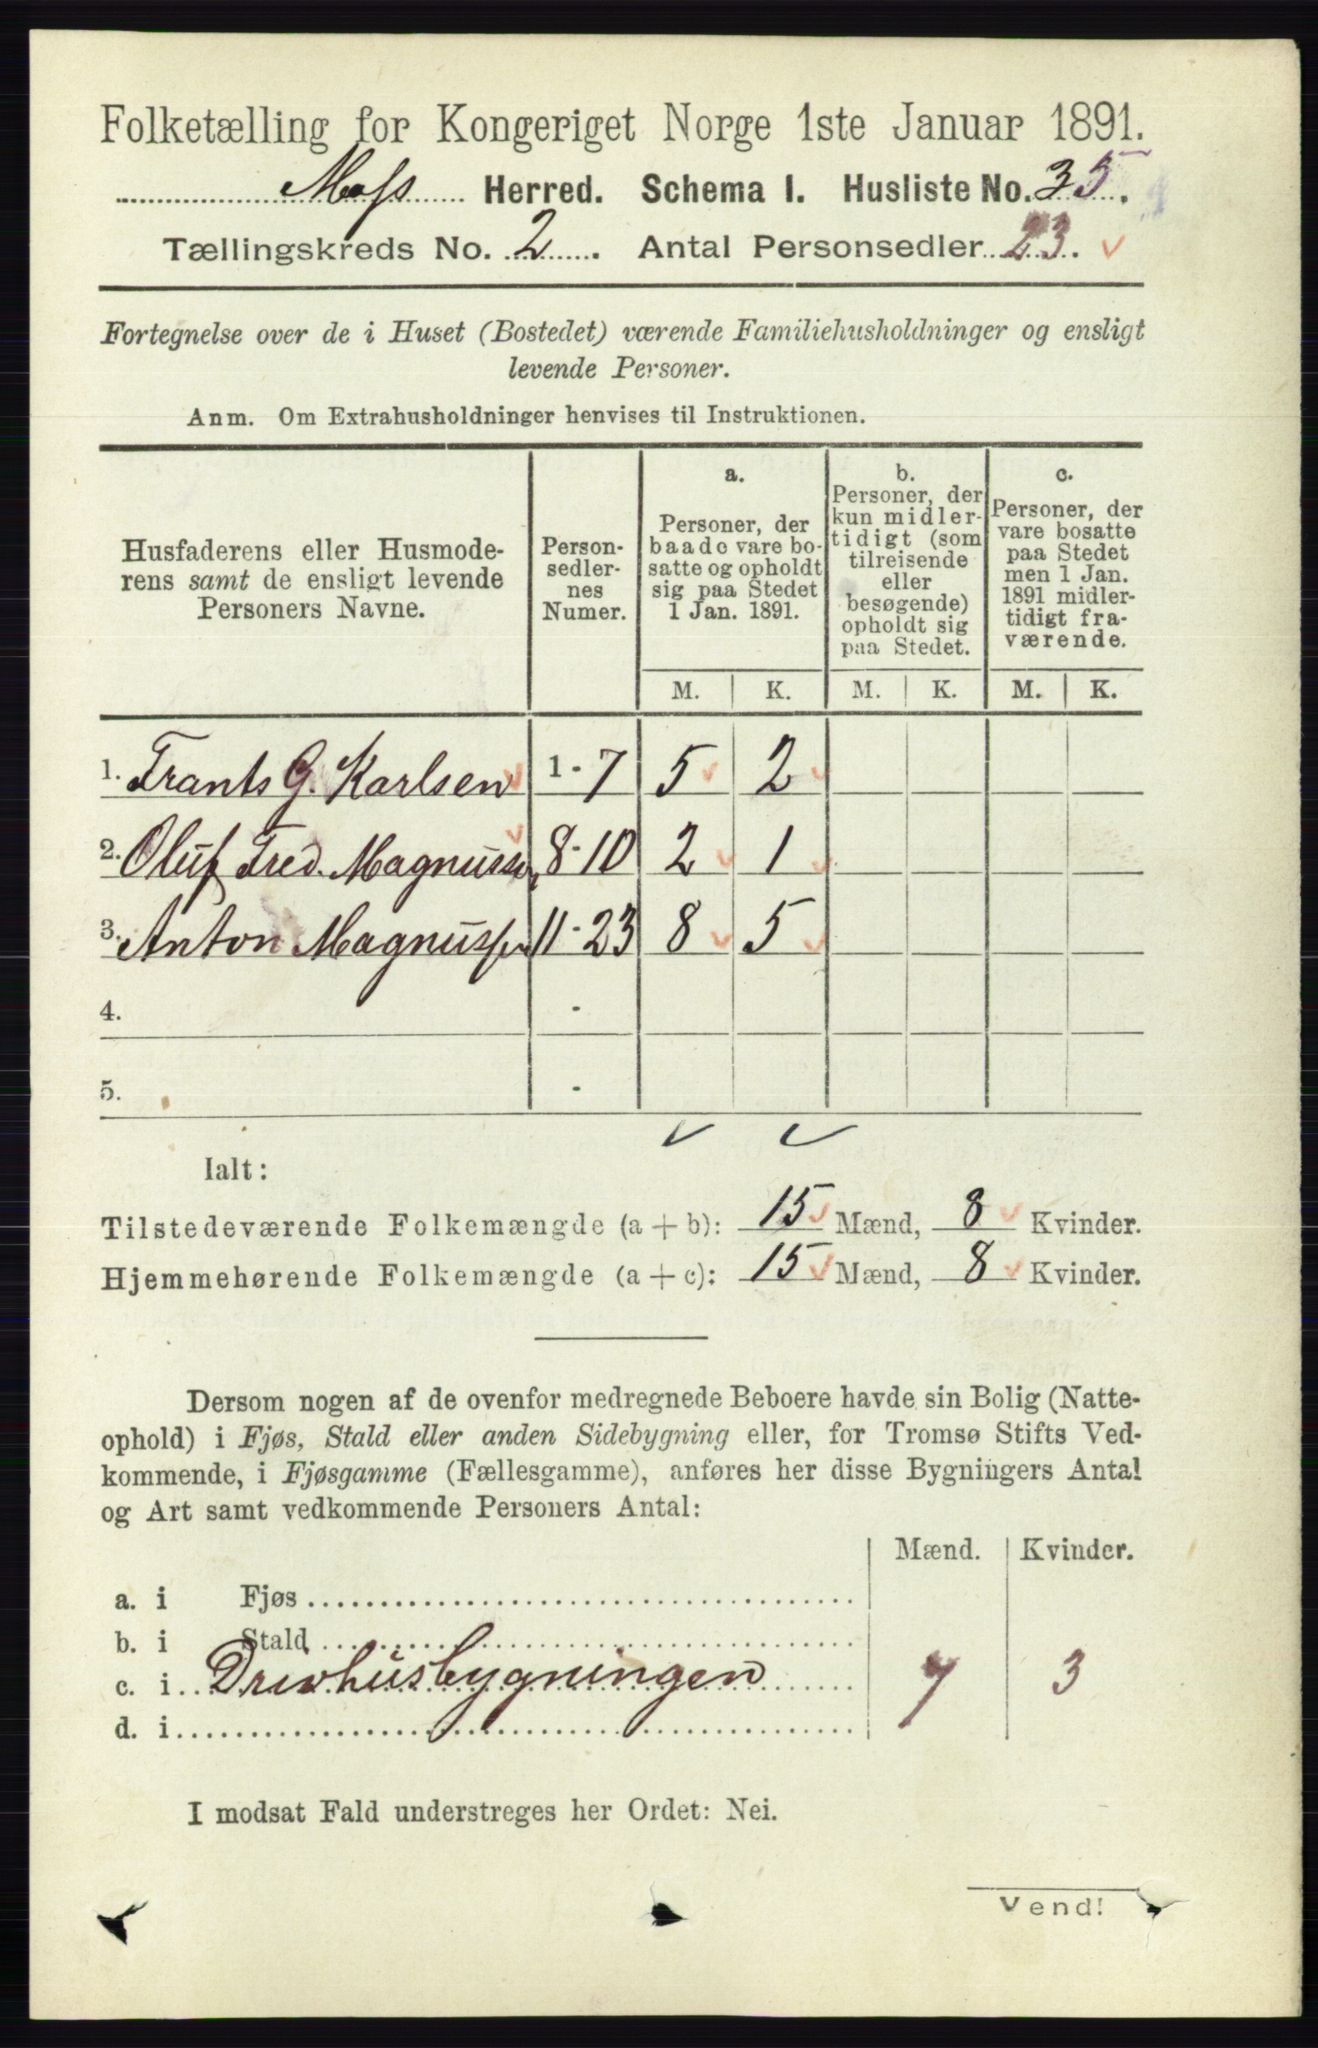 Folketælling for Kongeriget Norge 1ste Januar 1891.
Moss Herred. Schema I. Husliste No. 35.
Tællingskreds No. 2. Antal Personsedler 23.
Fortegnelse over de i Huset (Bostedet) værende Familiehusholdninger og ensligt
levende Personer.
Anm. Om Extrahusholdninger henvises til Instruktionen.
Husfaderens eller Husmode-
rens samt de ensligt levende
Personers Navne.
Person-
sedler-
nes
Numer.
a.
Personer, der
baade vare bo-
satte og opholdt
sig paa Stedet
1 Jan. 1891.
b.
Personer, der
kun midler-
tidigt (som
tilreisende
eller
besøgende)
opholdt sig
paa Stedet.
c.
Personer, der
vare bosatte
paa Stedet
men 1 Jan.
1891 midler-
tidigt fra-
værende.
M. K. M. K. M. K.
1. Frants G. Karlsen 1-7 5 2
2. Oluf Fred. Magnussen 8-10 2 1
3. Anton Magnussen 11-23 8 5
4. -
5. -
Ialt:
Tilstedeværende Folkemængde (a + b): 15 Mænd, 8 Kvinder.
Hjemmehørende Folkemængde (a + c): 15 Mænd, 8 Kvinder.
Dersom nogen af de ovenfor medregnede Beboere havde sin Bolig (Natte-
ophold) i Fjøs, Stald eller anden Sidebygning eller, for Tromsø Stifts Ved-
kommende, i Fjøsgamme (Fællesgamme), anføres her disse Bygningers Antal
og Art samt vedkommende Personers Antal:
Mænd. Kvinder.
a. i Fjøs
b. i Stald
c. i Drivhusbygningen 7 3
d. i
I modsat Fald understreges her Ordet: Nei.
Vend!